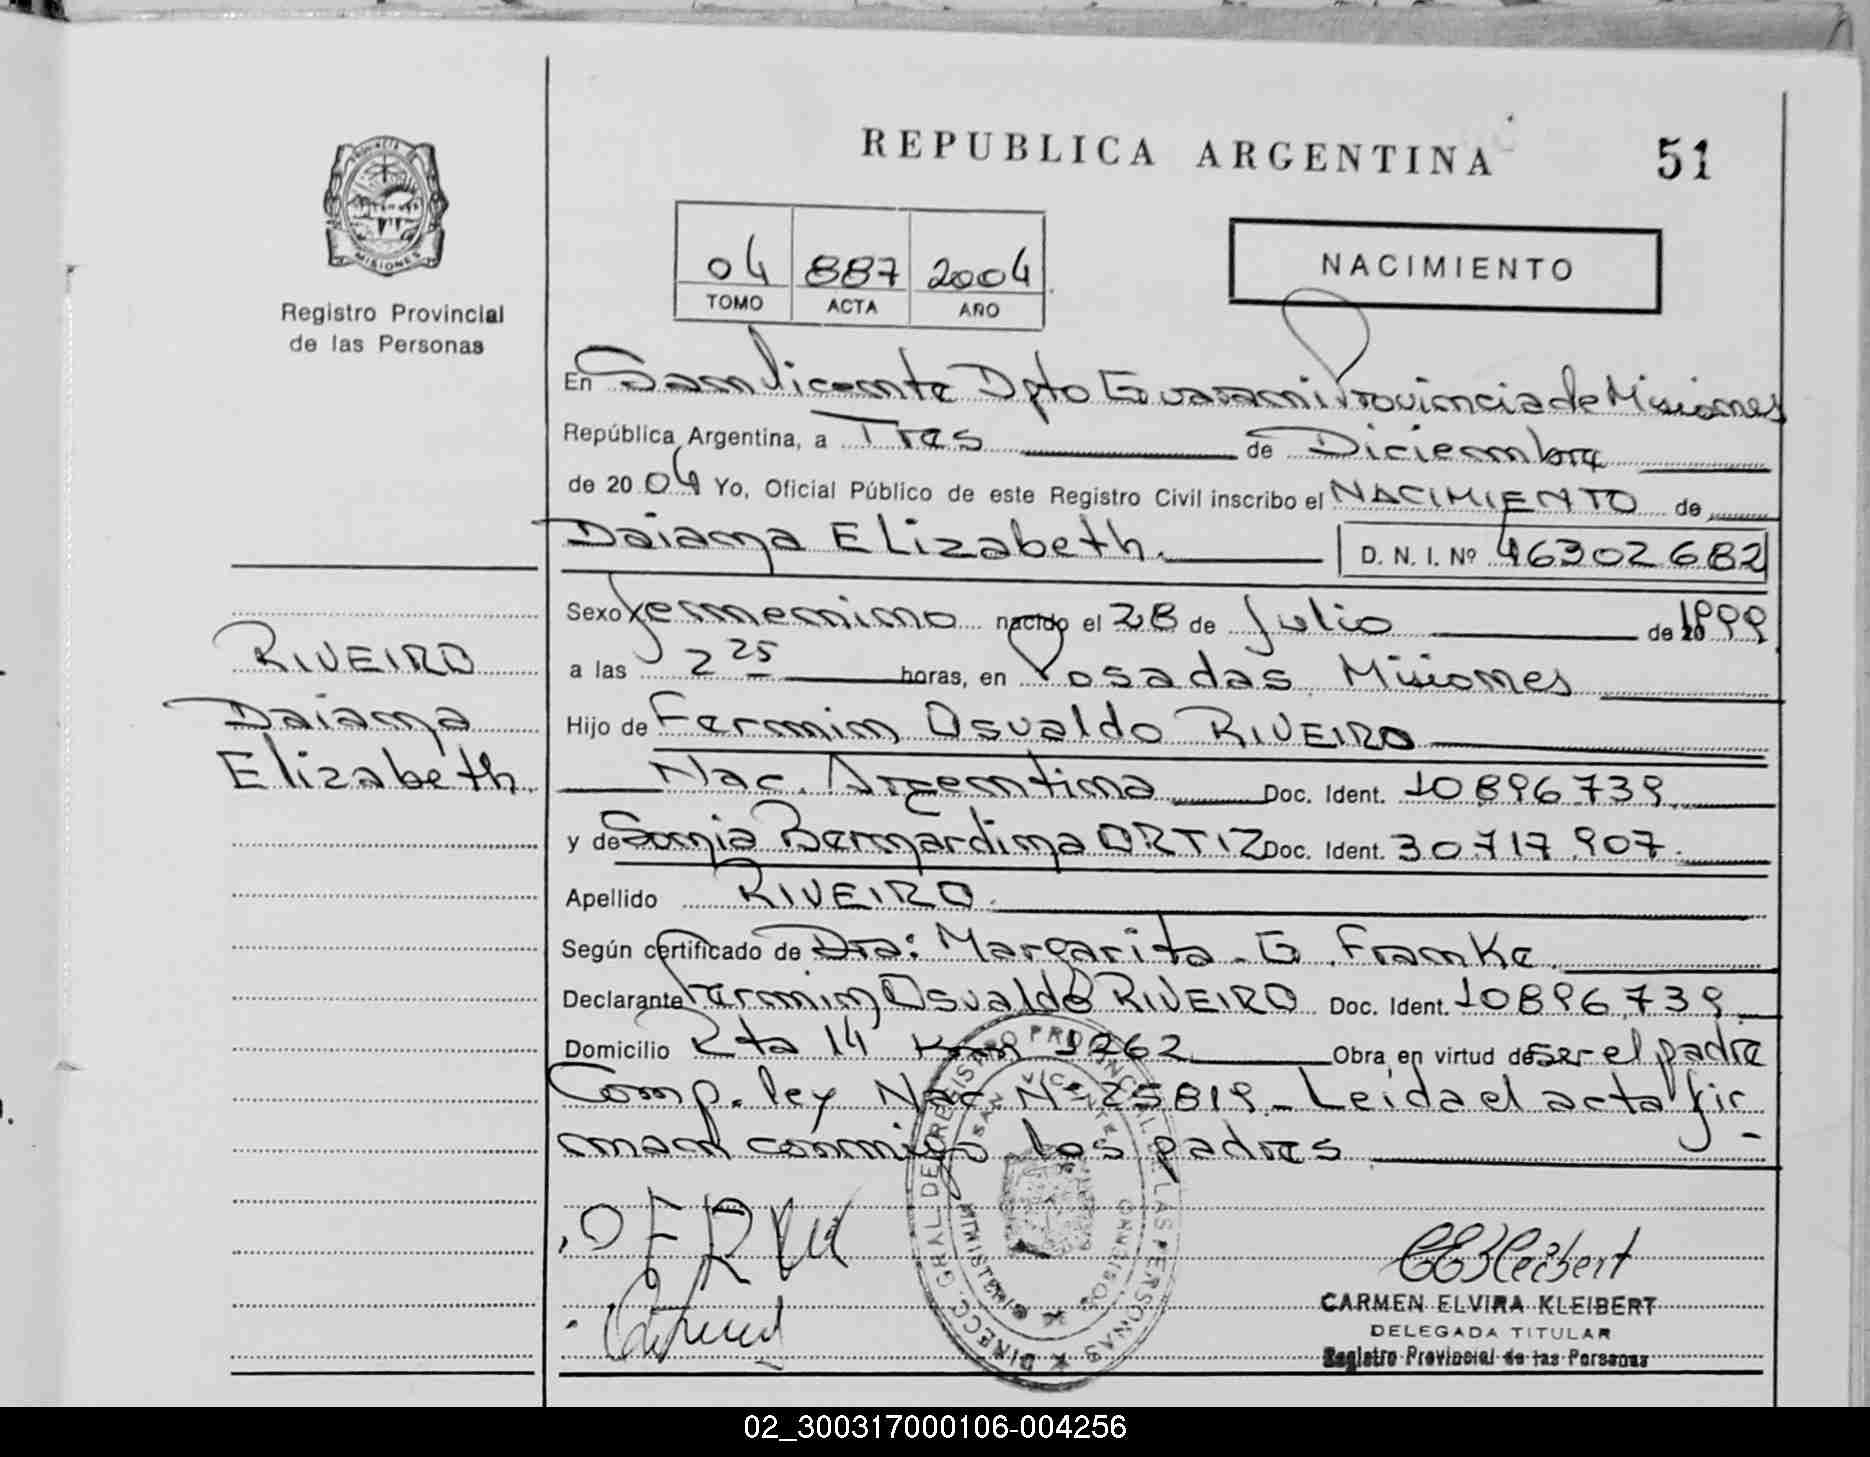 REPUBLICA ARGENTINA
51
PROVINCIA DE
MISIONES
Registro Provincial
de las Personas
04 887 2004
TOMO ACTA AÑO
NACIMIENTO
En San Vicente Dpto Guarani Provincia de Misiones
República Argentina, a Tres de Diciembre
de 2004 Yo, Oficial Público de este Registro Civil inscribo el NACIMIENTO de
Daiana Elizabeth. D. N. I. Nº 46302682
Sexo femenino nacido el 28 de Julio de 1999
a las 2 25 horas, en Posadas Misiones
Hijo de Fermin Osvaldo RIVEIRO
Nac. Argentina Doc. Ident. 10896739
y de Sonia Bernardina ORTIZ Doc. Ident. 30.717.907.
Apellido RIVEIRO.
Según certificado de Dra: Margarita G. Franke
Declarante Fermin Osvaldo RIVEIRO Doc. Ident. 10896739
Domicilio Rta 14 Km 1262 Obra en virtud de ser el padre
Comp. ley Nac Nº 25819 - Leida el acta fir
man conmigo los padres
RIVEIRO
Daiana
Elizabeth.
DIRECC. GRAL. DE REGISTRO PROVINCIAL DE LAS PERSONAS
SAN VICENTE
MISIONES
MINISTERIO
CEKleibert
CARMEN ELVIRA KLEIBERT
DELEGADA TITULAR
Registro Provincial de las Personas
02_300317000106-004256